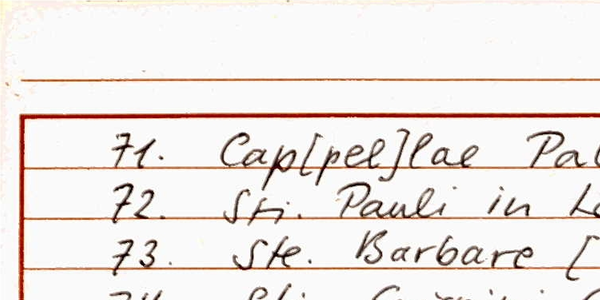 71. Cap[pel]lae Pal
72. Sti. Pauli in
73. Ste. Barbare [